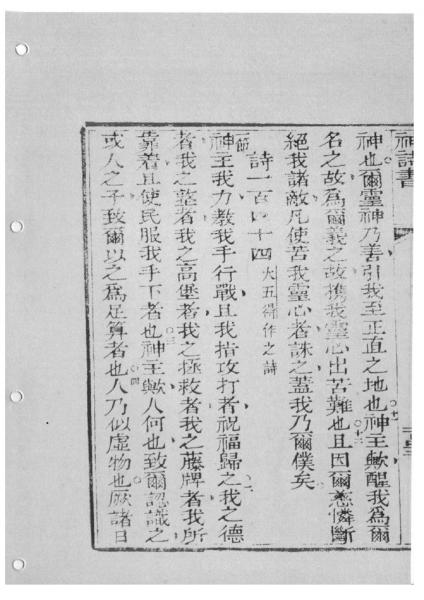 神詩書
神也爾靈神乃善引我至正直之地也○十一神主歟醒我爲爾
名之故爲爾義之故携我靈心出苦難也○十二且因爾慈憐斷
絕我諸敵凡使苦我靈心者誅之蓋我乃爾僕矣
詩一百四十四 大五得作之詩
一節神主我力教我手行戰且我指攻打者祝福歸之○二我之德
者我之臺者我之高堡者我之拯救者我之藤牌者我所
靠着且使民服我手下者也○三神主歟人何也致爾認識之
或人之子致爾以之爲足算者也○四人乃似虛物也厥諸日